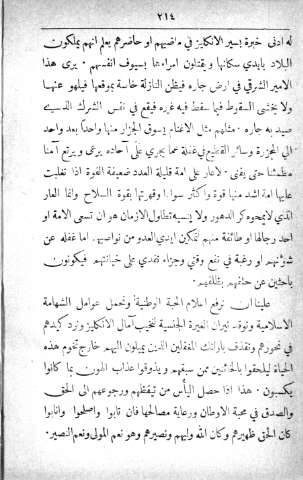 ٢١٤
له ادنى خبرة بسير الانكليز في ماضيهم او حاضرهم يعلم انهم يملكون
البلاد بايدي سكانها ويقتلون امراءها بسيوف انفسهم . يرى هذا
الامير الشرقي في ارض جاره فيظن النازلة خاصة بموقعها فيلهو عنها
ولا يخشى السقوط فيما سقط فيه غيره فيقع في نفس الشرك الذي
صيد به جاره . مثلهم مثل الاغنام يسوق الجزار منها واحداً بعد واحد
الى المجزرة وسائر القطيع في غفلة عما يجري على آحاده يرعى ويرتع آمناً
مطمئنا حتى يفنى . لا عار على امة قليلة العدد ضعيفة القوة اذا تغلبت
عليها امة اشد منها قوة واكثر سوادا وقهرتها بقوة السلاح وانما العار
الذي لا يمحوه كر الدهور ولا ينسيه تطاول الازمان هو ان تسعى الامة او
احد رجالها او طائفة منهم لتمكين ايدي العدو من نواصيهم اما غفلة عن
شؤنهم او رغبة في نفع وقتي وجزاء نقدي على خيانتهم فيكونون
باحثين عن حتفهم بظلفهم .
علينا ان نرفع اعلام الحمية الوطنية ونحمل عوامل الشهامة
الاسلامية ونوقد نيران الغيرة الجنسية لنخيب آمال الانكليز ونرد كيدهم
في نحورهم ونقذف باولئك المغفلين الذين يميلون اليهم خارج تخوم هذه
الحياة ليلحقوا بالخائنين ممن سبقهم ويذوقوا عذاب الهون بما كانوا
يكسبون . هذا اذا حصل اليأس من تيقظهم ورجوعهم الى الحق
والصدق في محبة الاوطان ورعاية مصالحها فان تابوا واصلحوا وانابوا
كان الحق ظهيرهم وكان الله وليهم ونصيرهم وهو نعم المولى ونعم النصير.